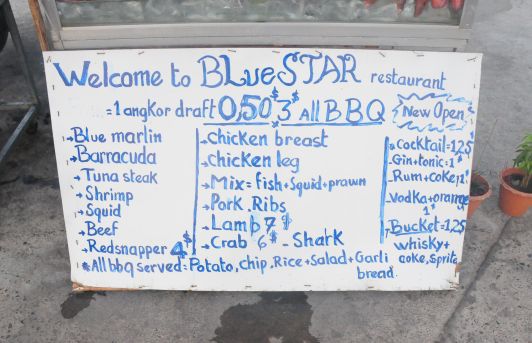 Welcome to BLueSTAR restaurant
=1 angkor draft 0,50$ 3$ All BBQ
New Open
→Blue marlin
→Barracuda
→Tuna steak
→Shrimp
→Squid
→Beef
→Redsnapper 4$
→Chicken breast
→Chicken leg
→Mix=fish+Squid+prawn
→Pork.Ribs
→Lamb 7$
→Crab 6$ - Shark
→Cocktail=1,25
→Gin+tonic=1$
→Rum+coke 1$
→Vodka+orange
1$
→Bucket=1,25
whisky+
coke, Sprite
*All bbq served=Potato,chip,Rice+Salad+Garli
bread.